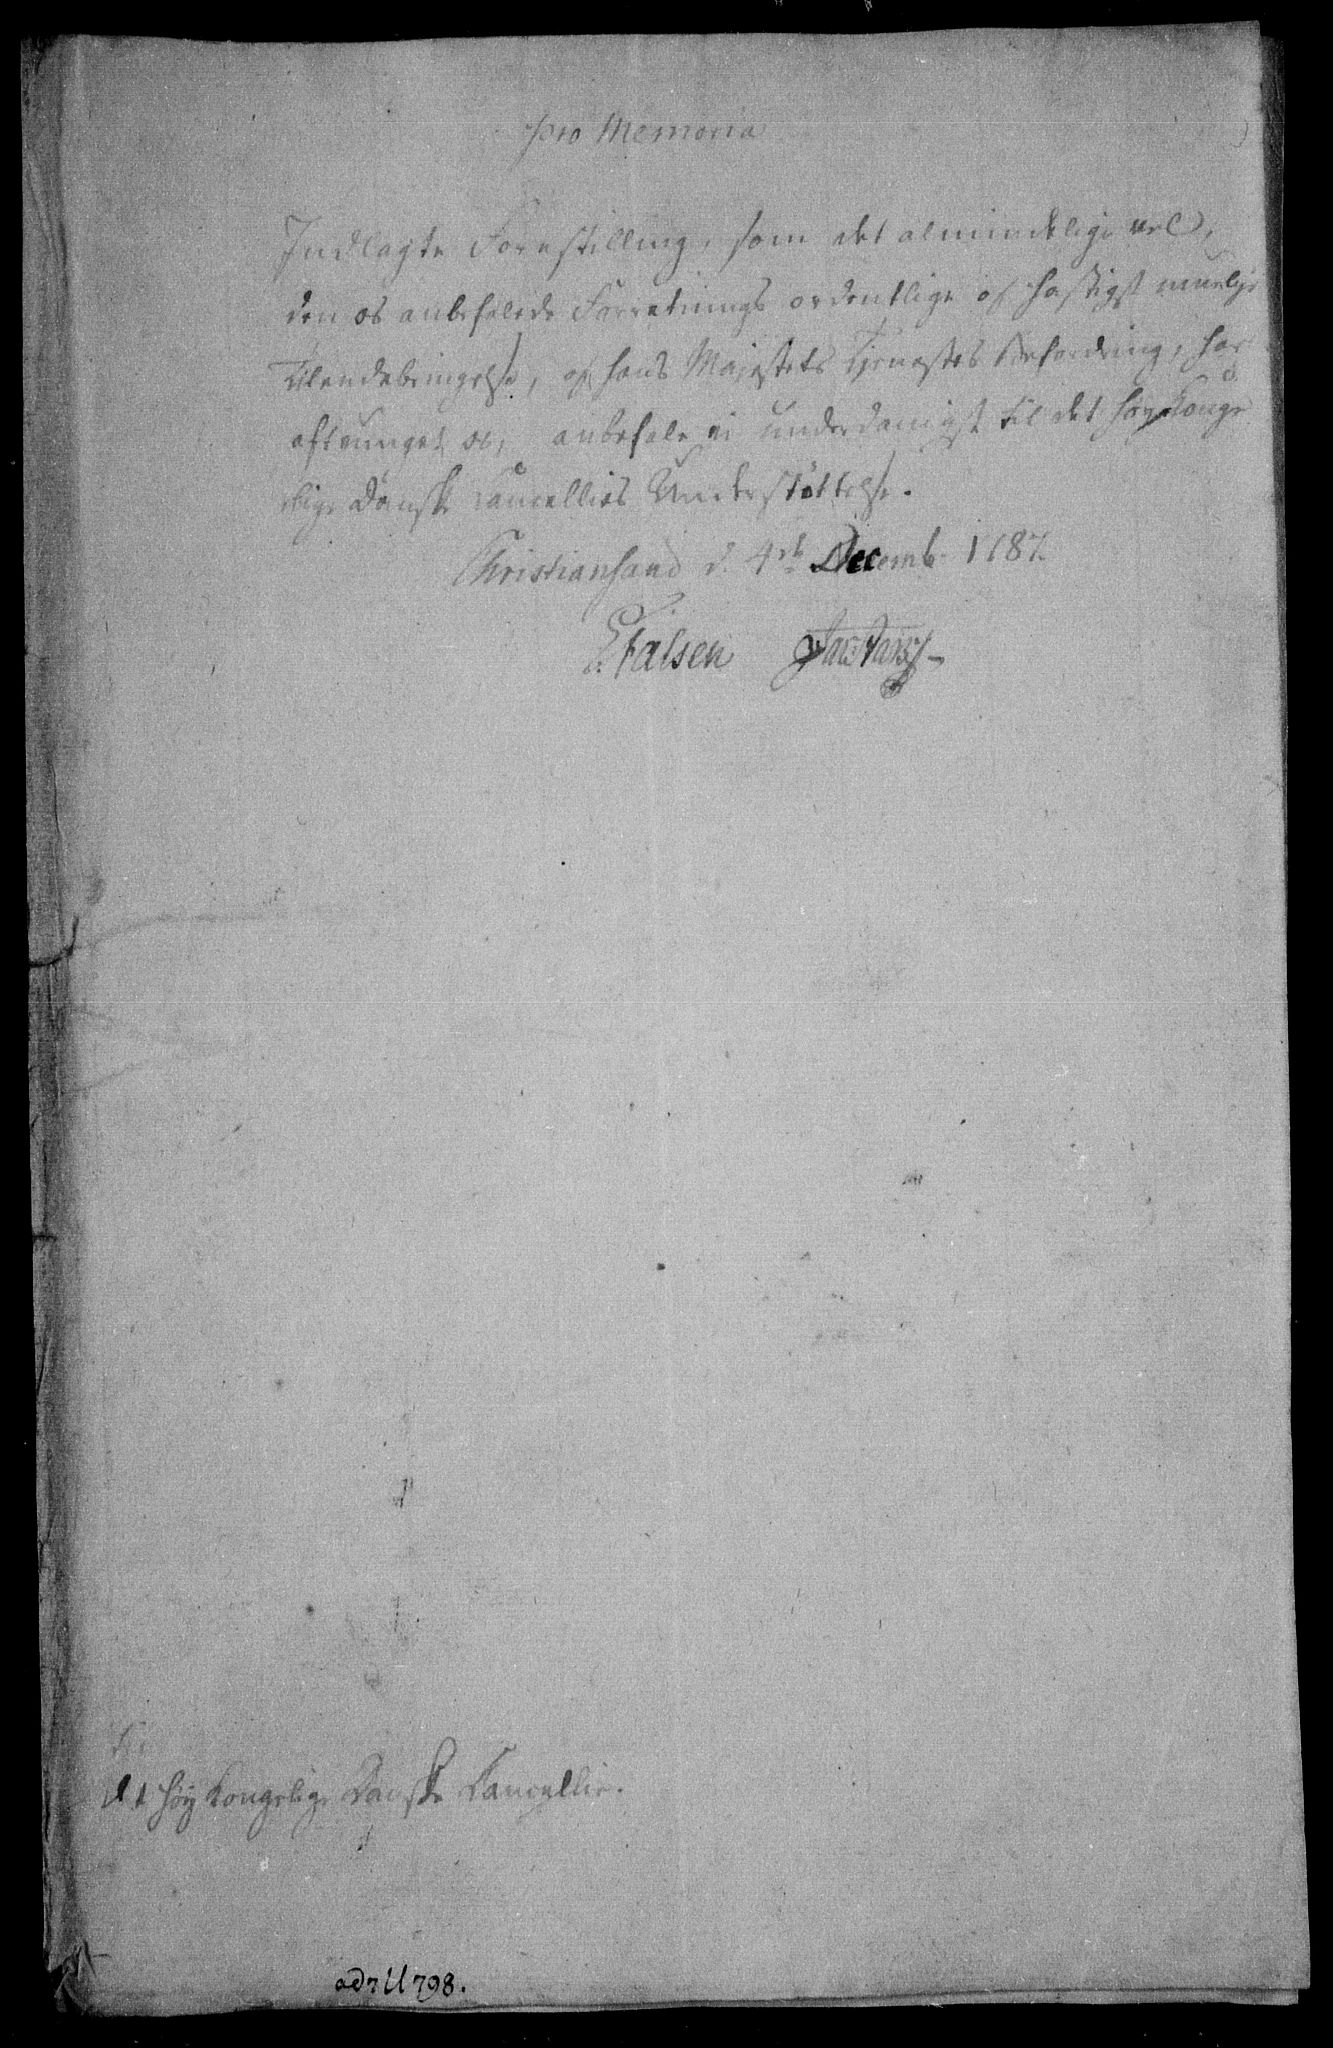 Pro Memoria
Indlagte Forestilling, som det almindelige vel,
den os anbefalede Forretnings ordentlige og hastigst muelige
Tilendebringelse, og hans Majestets Tjenestes Befordring, har
aftvunget os, anbefale vi underdanigst til det høy Konge-
lige Danske Cancellies Understøttelse.
Christiansand d. 4de Decemb. 1787.
E. Falsen
Til
det høy Kongelige Danske Cancellie.
798.